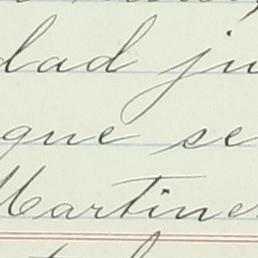 dad ju
que se
Martine